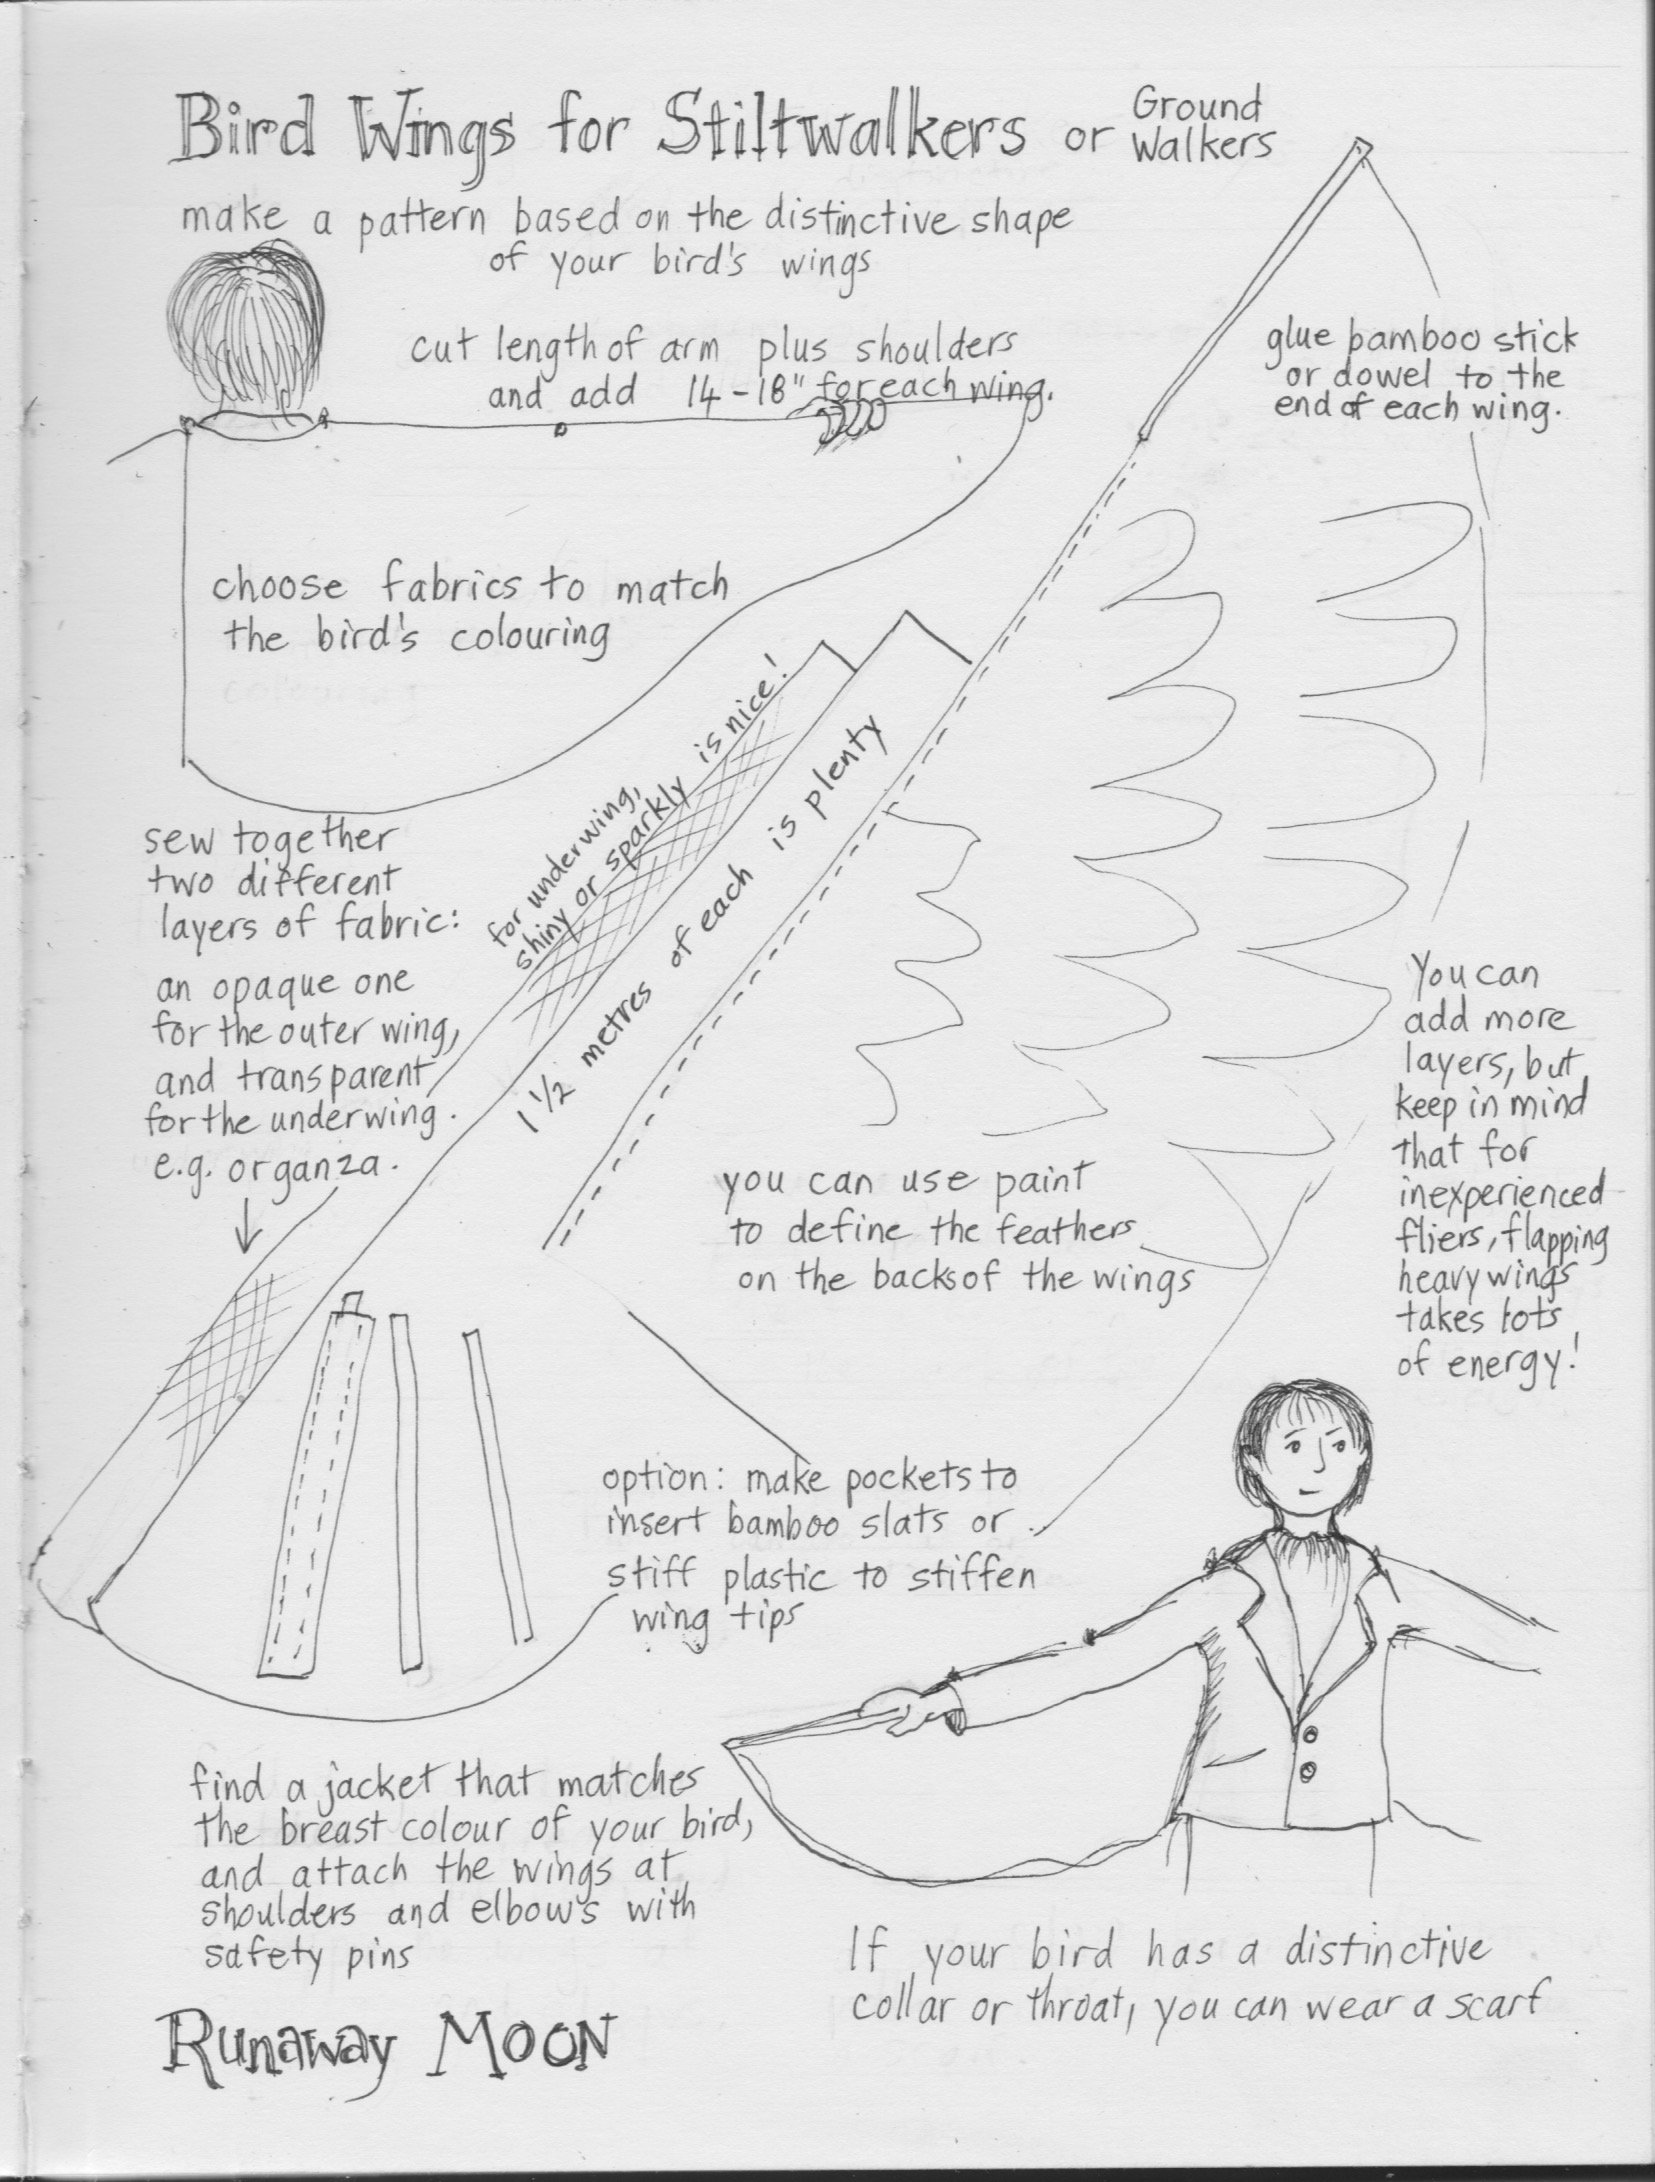 Bird Wings for Stiltwalkers or Ground Walkers
make a pattern based on the distinctive shape
of your bird's wings
cut length of arm plus shoulders
and add 14-18" for each wing.
glue bamboo stick
or dowel to the
end of each wing.
choose fabrics to match
the bird's colouring
for underwing,
shiny or sparkly is nice!
1 1/2 metres of each is plenty
sew together
two different
layers of fabric:
an opaque one
for the outer wing,
and transparent
for the underwing.
e.g. organza.
You can
add more
layers, but
keep in mind
that for
inexperienced
fliers, flapping
heavy wings
takes lots
of energy!
you can use paint
to define the feathers
on the backs of the wings
option: make pockets to
insert bamboo slats or
stiff plastic to stiffen
wing tips
find a jacket that matches
the breast colour of your bird,
and attach the wings at
shoulders and elbows with
safety pins
If your bird has a distinctive
collar or throat, you can wear a scarf
Runaway Moon